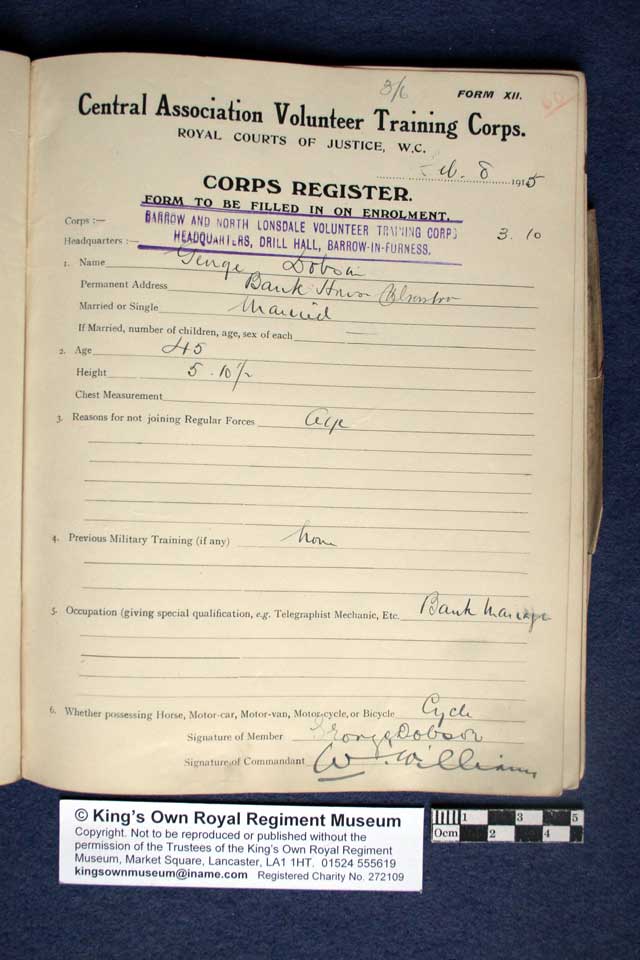 3/6
FORM XII.
60
Central Association Volunteer Training Corps.
ROYAL COURTS OF JUSTICE, W.C.
Feb. 8 1915
CORPS REGISTER.
FORM TO BE FILLED IN ON ENROLMENT.
Corps :— BARROW AND NORTH LONSDALE VOLUNTEER TRAINING CORPS
3.10
Headquarters :— HEADQUARTERS, DRILL HALL, BARROW-IN-FURNESS.
1. Name George Dobson
Permanent Address Bank House Ulverston
Married or Single Married
If Married, number of children, age, sex of each
2. Age 45
Height 5.10½
Chest Measurement
3. Reasons for not joining Regular Forces Age
4. Previous Military Training (if any) None
5. Occupation (giving special qualification, e.g. Telegraphist Mechanic, Etc. Bank Manager
6. Whether possessing Horse, Motor-car, Motor-van, Motor-cycle, or Bicycle Cycle
Signature of Member George Dobson
Signature of Commandant W. Williams
© King's Own Royal Regiment Museum
Copyright. Not to be reproduced or published without the
permission of the Trustees of the King's Own Royal Regiment
Museum, Market Square, Lancaster, LA1 1HT. 01524 555619
kingsownmuseum@iname.com Registered Charity No. 272109
1 3 5
0cm 2 4